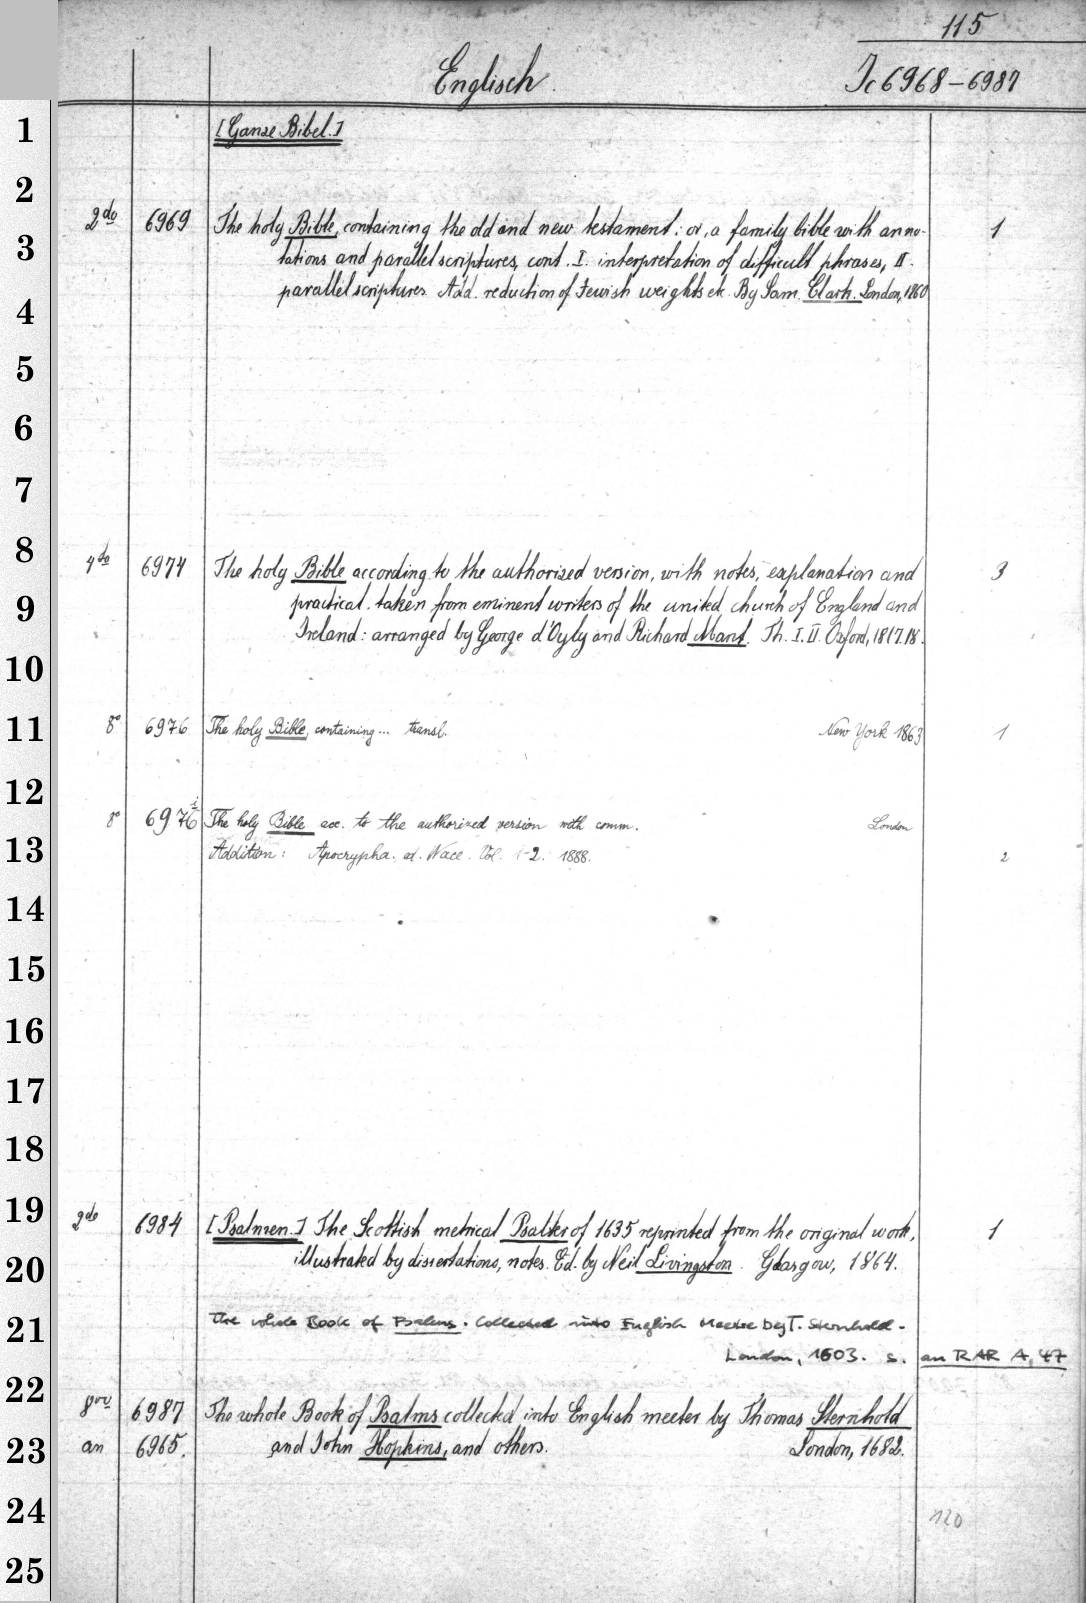 115
Englisch. Ic 6968–6987
[Ganze Bibel.]
2do 6969 The holy Bible, containing the old and new testament: or, a family bible with anno- 1
tations and parallel scriptures, cont. I. interpretation of difficult phrases, II.
parallel scriptures. Add. reduction of Jewish weights etc. By Sam. Clark. London, 1860
4to 6974 The holy Bible according to the authorized version, with notes, explanation and 3
practical. taken from eminent writers of the united church of England and
Ireland: arranged by George d'Oyly and Richard Mant. Th. I. II. Oxford, 1817.18.
8° 6976 The holy Bible, containing... transl. New York 1863 1
8° 6976 i The holy Bible acc. to the authorized version with comm. London
Addition: Apocrypha. ed. Wace. Vol. 1-2. 1888. 2
2do 6984 [Psalmen.] The Scottish metrical Psalter of 1635 reprinted from the original work, 1
illustrated by dissertations, notes. Ed. by Neil Livingston. Glasgow, 1864.
The whole Book of Psalms. Collected into English Meeter by T. Sternhold.-
London, 1603. s. an RAR A, 47
8vo 6987 The whole Book of Psalms collected into English meeter by Thomas Sternhold
an 6965. and John Hopkins, and others. London, 1682.
120
1
2
3
4
5
6
7
8
9
10
11
12
13
14
15
16
17
18
19
20
21
22
23
24
25